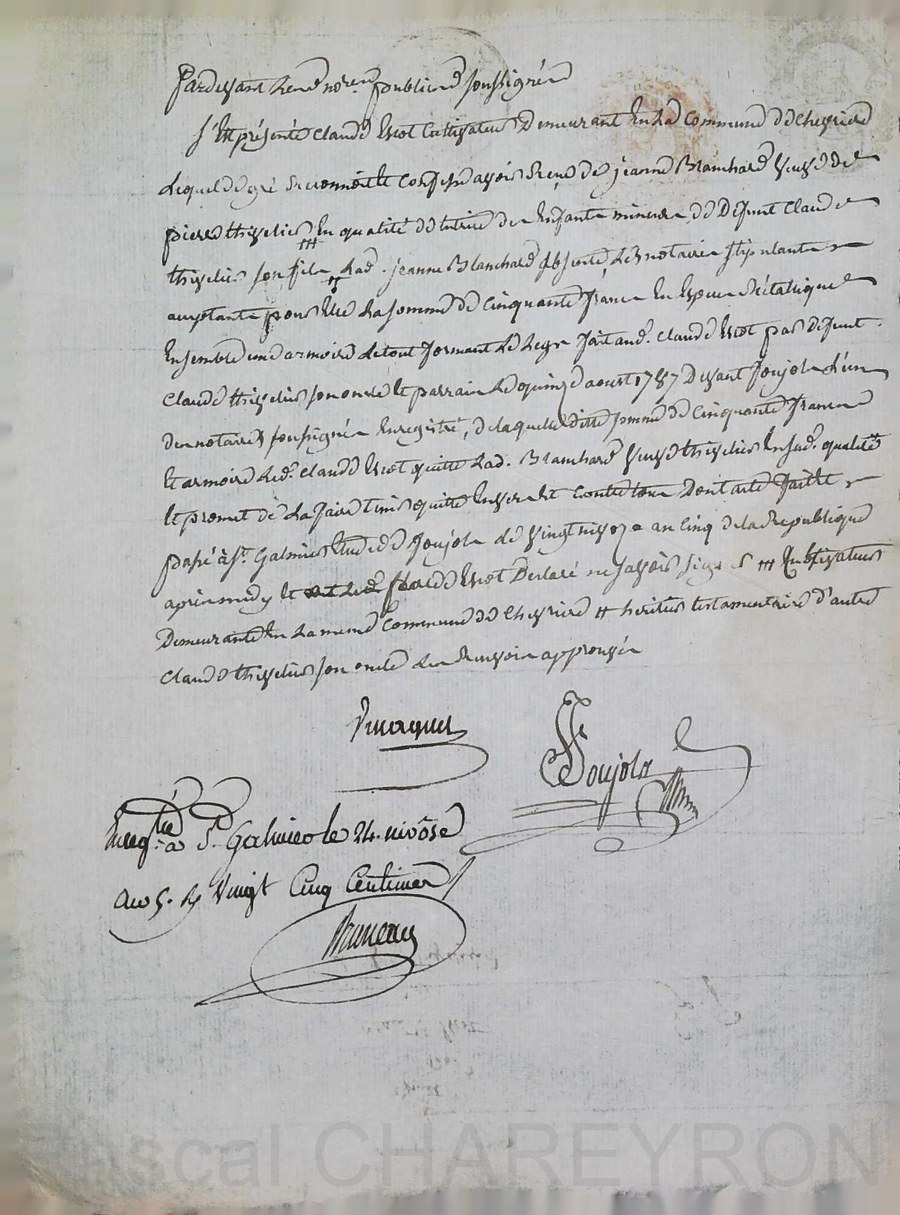 Pardevant les notres publics soussignés
S'Est présenté Claude Viot Cultivateur Demeurant En La Commune de Chevrières
Lequel de gré reconnoit et confesse avoir reçu de jeanne Blanchard veuve de
pierre thivelier En qualité de tutrice des Enfants mineurs de Defunt Claude
thivelier son fils Lad. jeanne Blanchard absente, Les notaires stipulants
acceptants pour Elle La somme de Cinquante francs En Espèces métalliques
Ensemble une armoire Le tout formant Le Legs fait aud. Claude Viot par Défunt
Claude thivelier son oncle et parrain Le quinze aoust 1787 Devant Joujola L'un
des notaires soussignés Enregistré, de laquelle ditte somme de Cinquante francs
et armoire Led. Claude Viot quitte Lad. Blanchard veuve thivelier En sad. qualité
et promet de La faire tenir quitte Envers et Contre tous Dont acte fait et
passé à St. Galmier Etude de Joujola Le vingt nivose an Cinq de la Republique
apres midy et Claude Viot Déclaré ne savoir signer Cultivateurs
Demeurants En La meme Commune de Chevrières # heritier testamentaire d'autre
Claude thivelier son oncle Les Renvois approuvés
Joujola
Enregtré à St. Galmier le 24. nivôse
an 5. Vingt Cinq Centimes
Bruneau
Pascal CHAREYRON